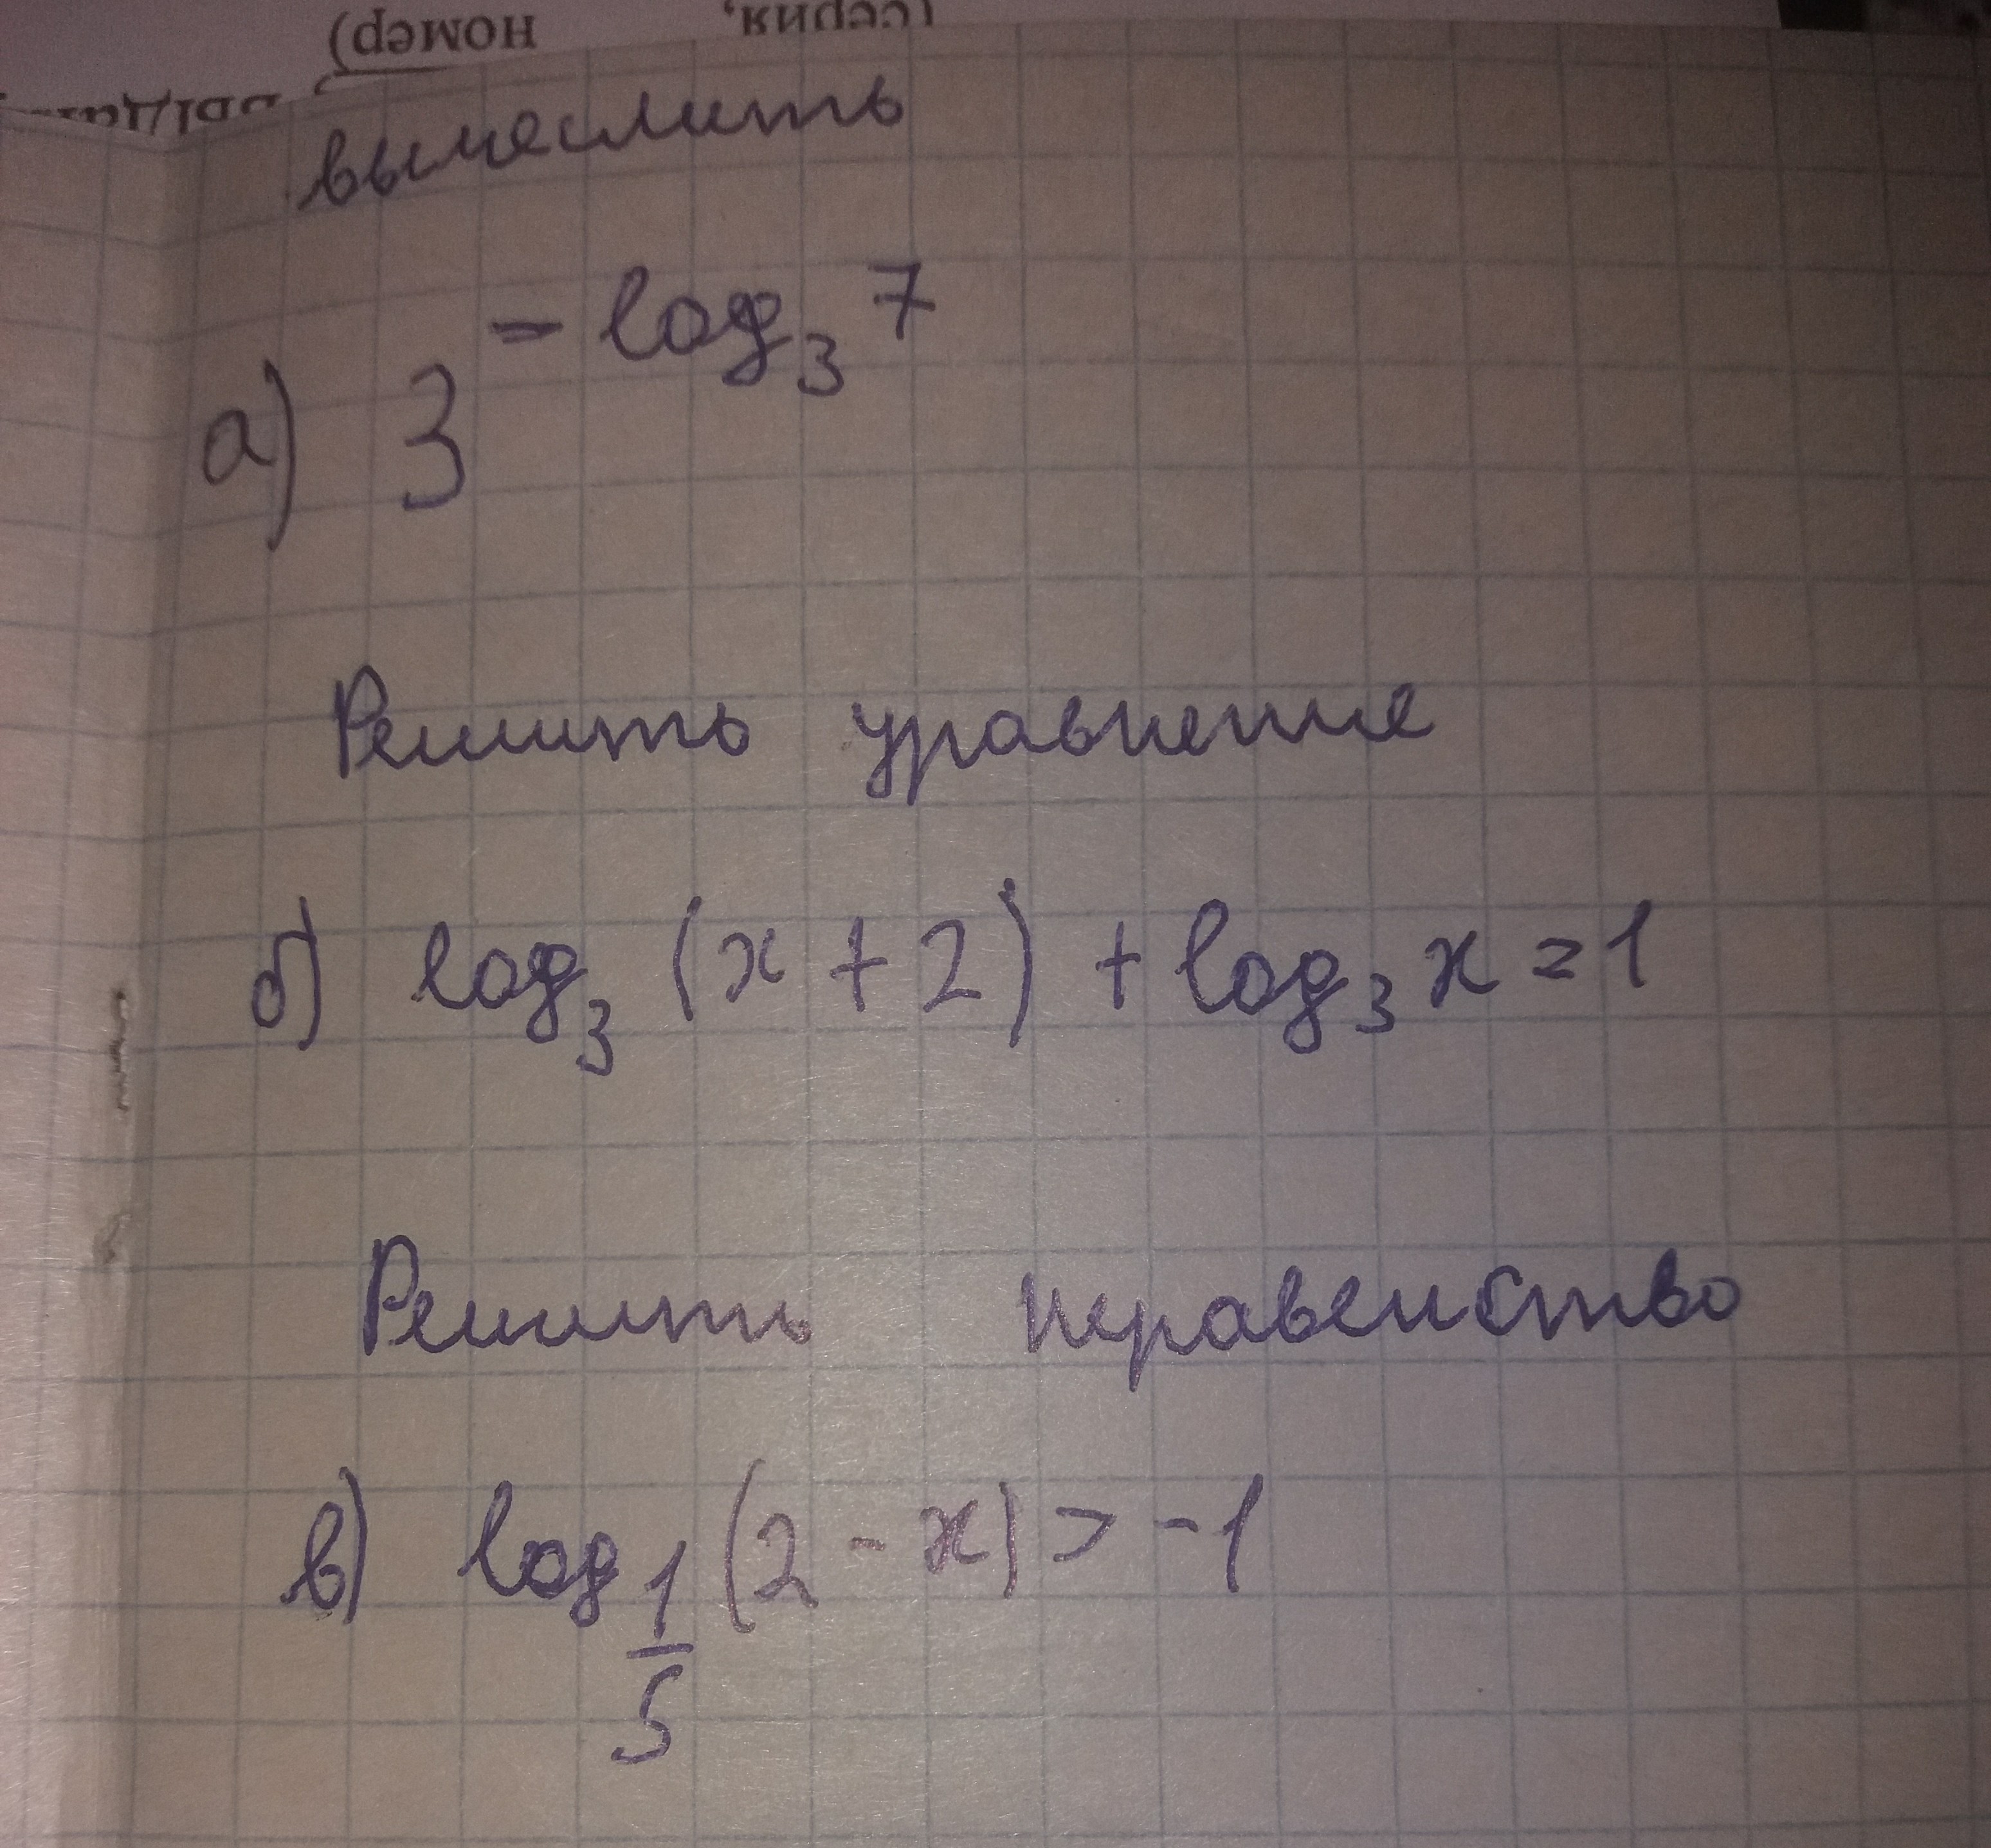 (серия,
номер)
вычеслить
а) 3^{-log_3 7}
Решить уравнение
б) log_3 (x + 2) + log_3 x = 1
Решить неравенство
в) log_{1/5} (2 - x) > -1